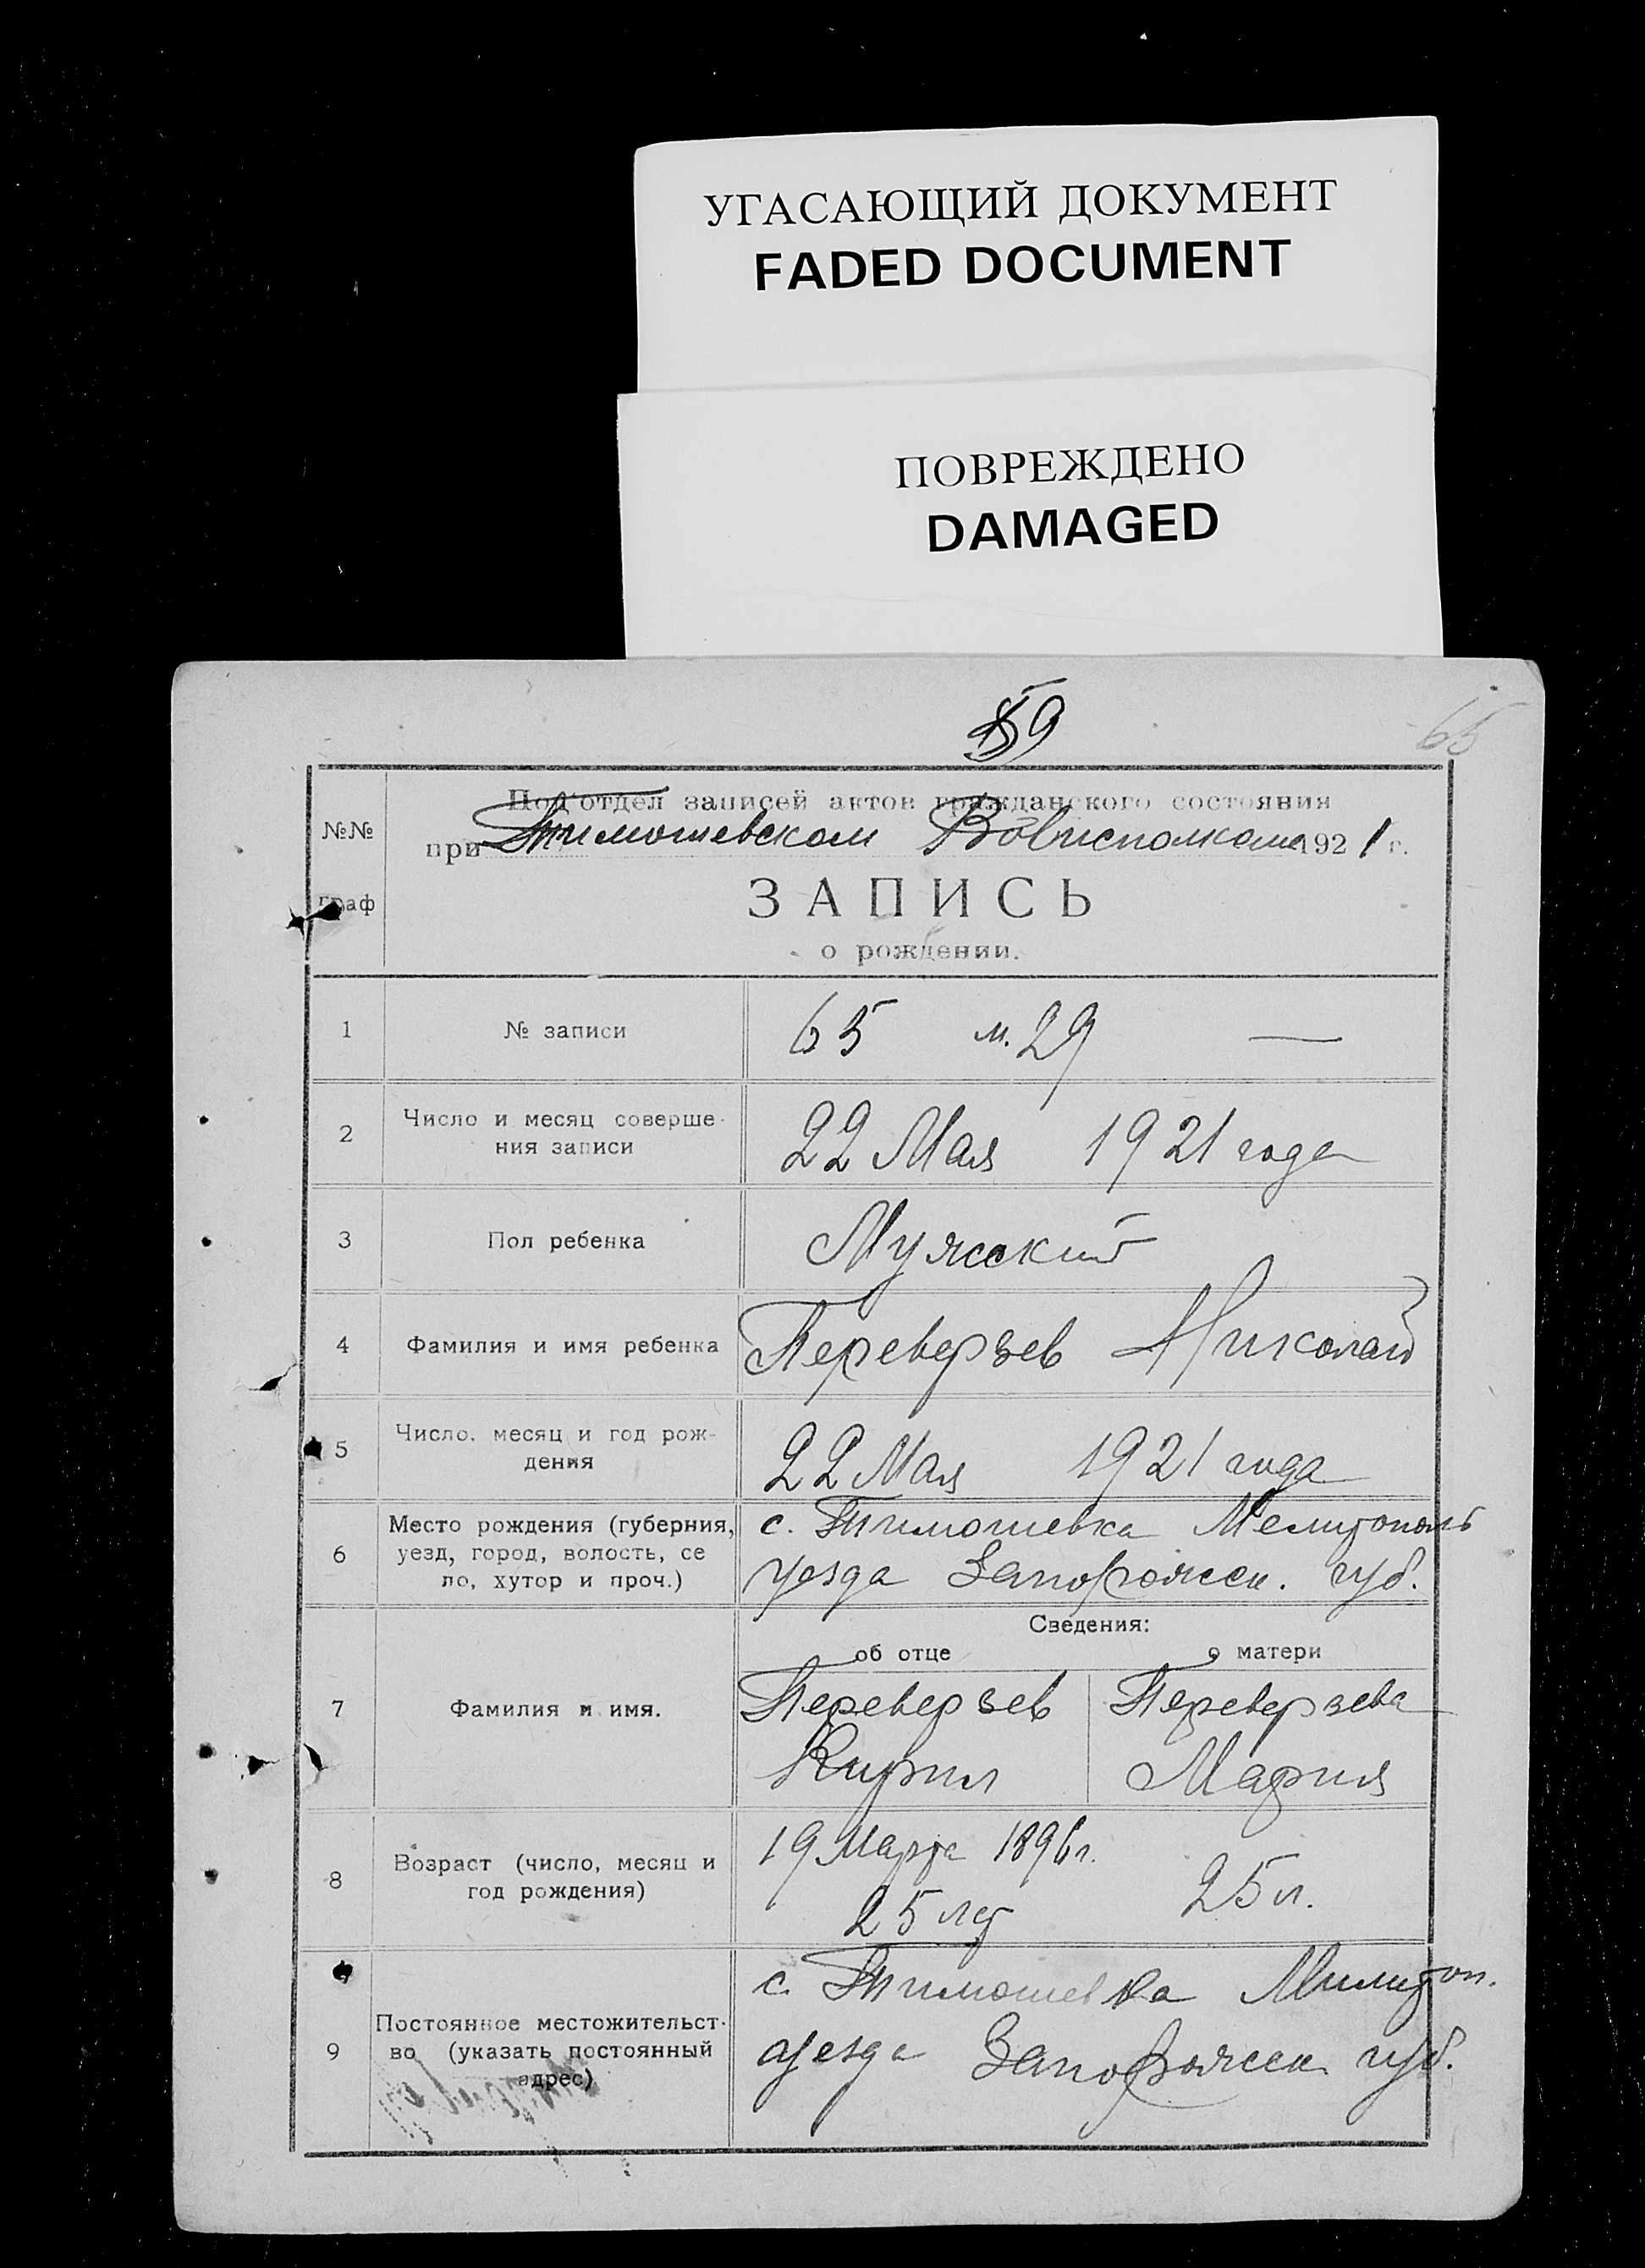 УГАСАЮЩИЙ ДОКУМЕНТ
FADED DOCUMENT
ПОВРЕЖДЕНО
DAMAGED
59
65
Под'отдел записей актов гражданского состояния
№№ при Тимошевском Волисполкоме 1921 г.
граф
ЗАПИСЬ
о рождении.
1 № записи 65 м. 29 —
2 Число и месяц соверше-
ния записи 22 Мая 1921 года
3 Пол ребенка Мужский
4 Фамилия и имя ребенка Переверзев Николай
5 Число, месяц и год рож-
дения 22 Мая 1921 года
6 Место рождения (губерния, с. Тимошевка Мелитополь
уезд, город, волость, се
ло, хутор и проч.) уезда Запорожск. губ.
Сведения:
об отце о матери
7 Фамилия и имя. Переверзев Переверзева
Кирил Мария
8 Возраст (число, месяц и 19 Марта 1896 г.
год рождения) 25 лет 25 л.
с. Тимошевка Милитоп.
9 Постоянное местожительст-
во (указать постоянный уезда Запорожск. губ.
адрес)